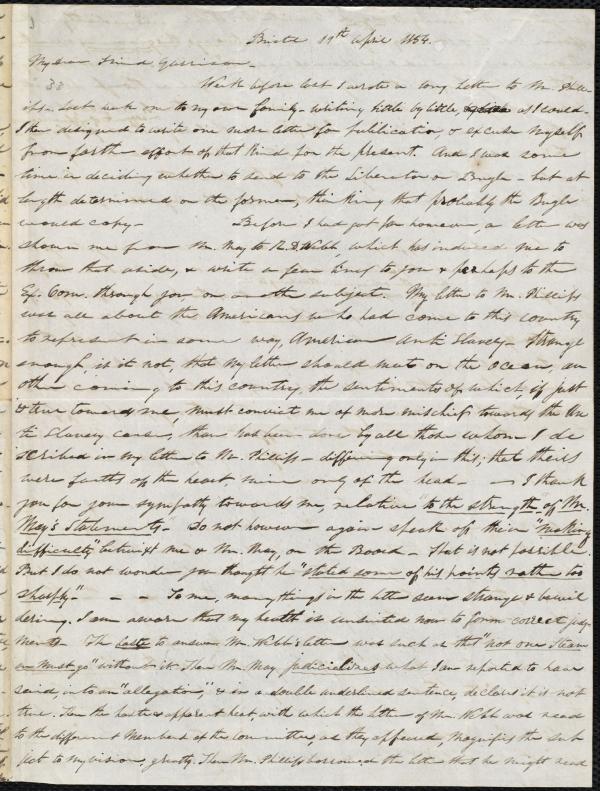 Bristol 19th April 1853.
My dear Friend Garrison.
33 Week before last I wrote a long letter to Mr. Phill-
ips. Last week one to my own family, writing little by little, as I could.
I then designed to write one more letter for publication, & excuse myself
from farther effort of that kind for the present. And I was some
time in deciding whether to send to the Liberator or Bugle - but at
length determined on the former, thinking that probably the Bugle
would copy. Before I had got far however, a letter was
shown me from Mr. May to R.D. Webb which has induced me to
throw that aside, & write a few lines to you & perhaps to the
Ex. Com. through you on another subject. My letter to Mr. Phillips
was all about the Americans who had come to this country
to represent in some way, American Anti Slavery. Strange
enough, is it not, that my letter should meet on the Ocean, an
other coming to this country, the sentiments of which, if just
& true towards me, must convict me of more mischief towards the An
ti Slavery cause, than has been done by all those whom I de
scribed in my letter to Mr. Phillips - differing only in this; that theirs
were faults of the heart, mine only of the head. - - I thank
you for your sympathy towards me, relative "to the strength of Mr.
May's Statements". Do not however again speak of their "making
difficulty" betwixt me & Mr. May, or the Board - that is not possible.
But I do not wonder you thought he "stated some of his points rather too
sharply." - - To me, many things in the letter seem strange & bewil
dering. I am aware that my health is unsuited now to form correct judg-
ments. The haste to answer Mr. Webb's letter was such as that "not one Steam
er must go" without it. Then Mr. May judicializes what I am reported to have
said, into an "allegation," & in a double underlined sentence, declares it is not
true. Then the haste & apparent heat, with which the letter of Mr. Webb was read
to the different Members of the Committee, as they appeared, magnifies the sub
ject to my vision, greatly. Then Mr. Phillips borrowed the letter that he might read